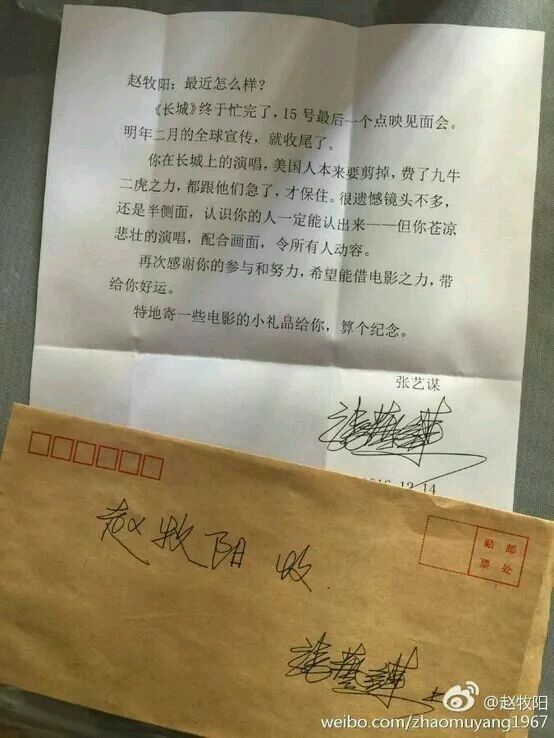 赵牧阳：最近怎么样？
《长城》终于忙完了，15号最后一个点映见面会。
明年二月的全球宣传，就收尾了。
你在长城上的演唱，美国人本来要剪掉，费了九牛
二虎之力，都跟他们急了，才保住。很遗憾镜头不多，
还是半侧面，认识你的人一定能认出来——但你苍凉
悲壮的演唱，配合画面，令所有人动容。
再次感谢你的参与和努力，希望能借电影之力，带
给你好运。
特地寄一些电影的小礼品给你，算个纪念。
张艺谋
张艺谋
2016.12.14
赵牧阳 收
贴 邮
票 处
张艺谋
@赵牧阳
weibo.com/zhaomuyang1967